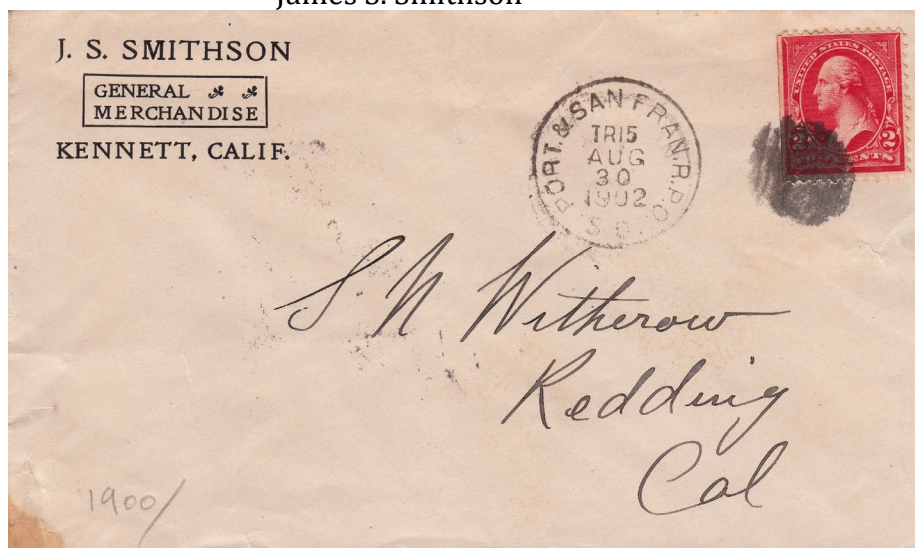 James S. Smithson
J. S. SMITHSON
GENERAL
MERCHANDISE
KENNETT, CALIF.
PORT. & SAN FRAN. R.P.O.
TR15
AUG
30
1902
UNITED STATES POSTAGE
2 2
TWO CENTS
S N Witherow
Redding
Cal
1900/